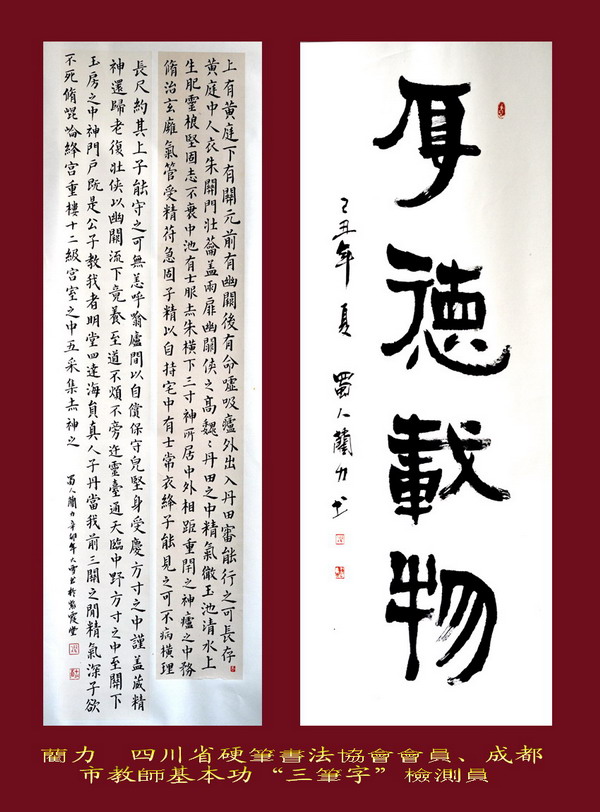 厚德載物
己丑年夏 蜀人蘭力書
上有黄庭下有關元前有幽關後有命嘘吸廬外出入丹田審能行之可長存
黄庭中人衣朱關門壯籥盖兩扉幽關俠之高魏丹田之中精氣微玉池清水上
生肥靈根堅固志不衰中池有士服赤朱橫下三寸神所居中外相距重閇之神廬之中務
脩治玄廱氣管受精符急固子精以自持宅中有士常衣絳子能見之可不病橫理
長尺約其上子能守之可無恙呼噏廬間以自償保守皃堅身受慶方寸之中謹盖藏精
神還歸老復壯俠以幽闕流下竟養至道不煩不旁迕靈臺通天臨中野方寸之中至關下
玉房之中神門戶既是公子教我者明堂四達海負真人子丹當我前三關之間精氣深子欲
不死脩崐崘絳宮重樓十二級宮室之中五采集赤神之
蜀人蘭力辛卯年大雪書於紫霞堂
蘭力 四川省硬筆書法協會會員、成都
市教師基本功“三筆字”檢測員